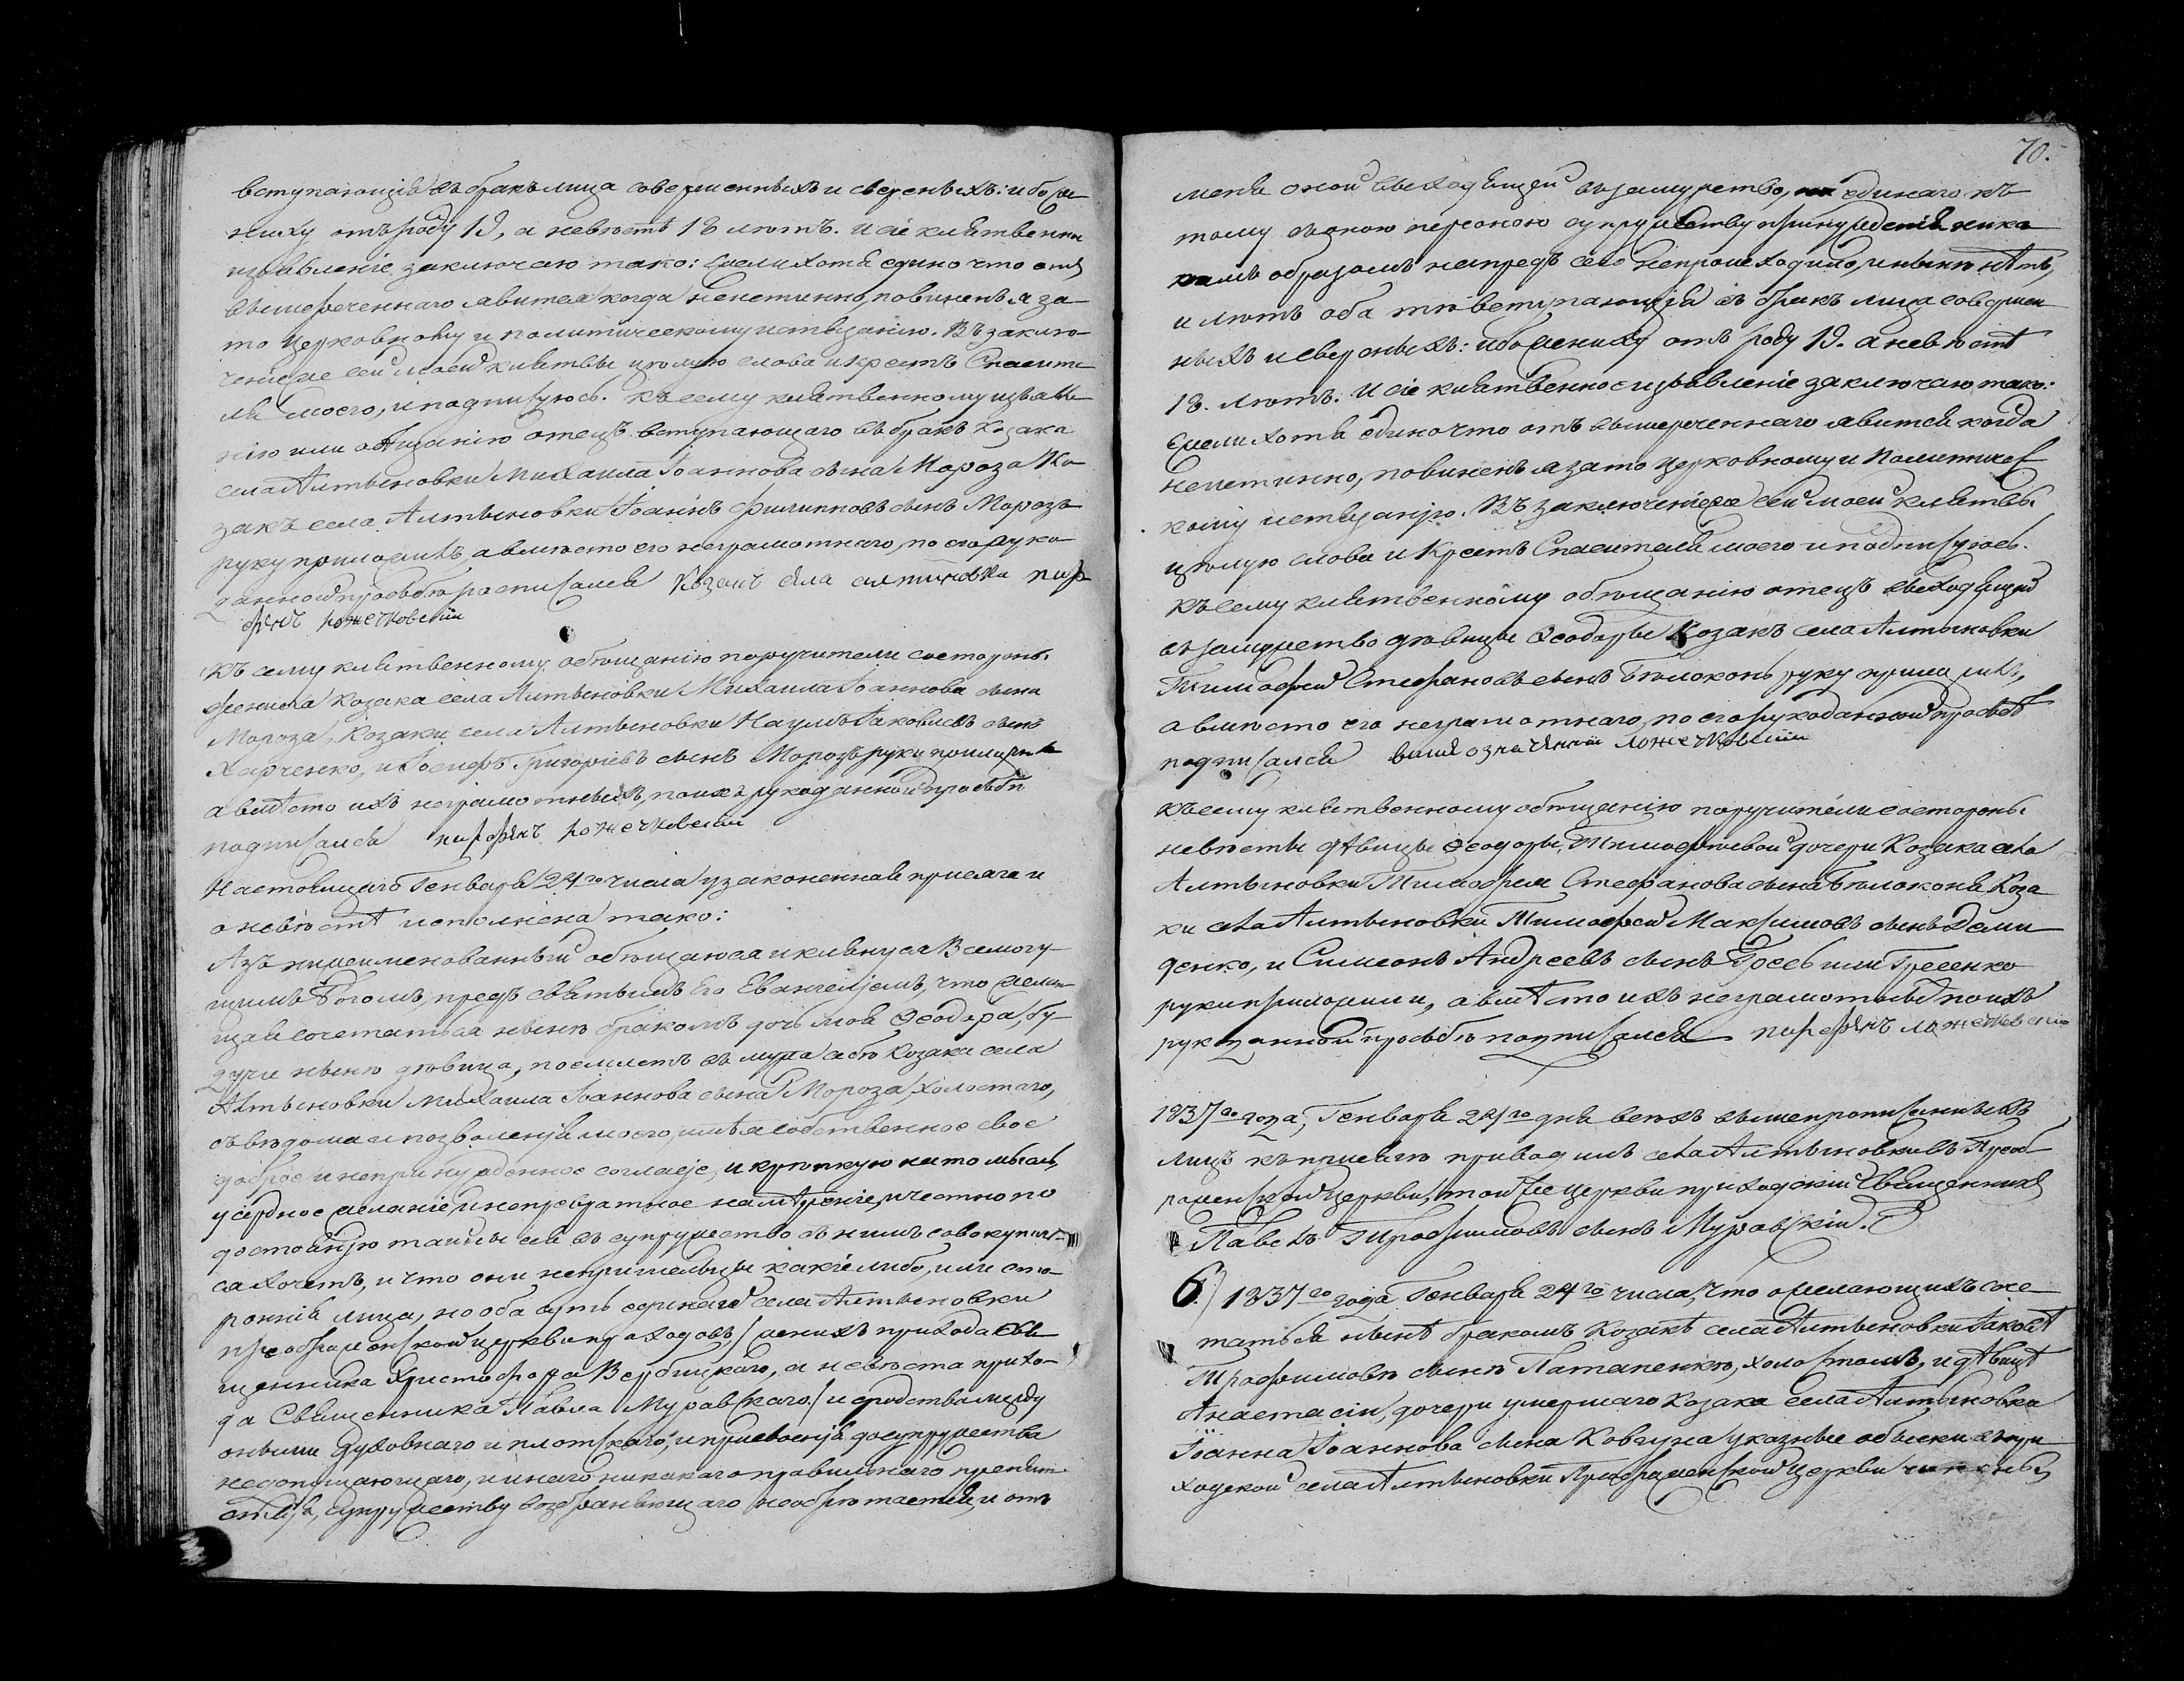 вступающія въ бракъ лица совершенныхъ и сверсныхъ: ибо же-
ниху отъ роду 19, а невѣстѣ 18 лѣтъ. И сіе клятвенное
изъявленіе заключаю тако: Ежели хотя едино что отъ
вышереченнаго явится когда неистинно, повиненъ я за
то церковному и политическому истязанію. Въ заклю-
ченіе же сей моей клятвы цѣлую слова и крестъ Спасите-
ля моего, и подпишуюсь. Къ сему клятвенному изъявле-
нію или обѣщанію отецъ вступающаго въ бракъ Козака
села Алтыновки Михаила Іоаннова сына Мороза Ко-
закъ села Алтыновки Іоаннъ Филипповъ сынъ Морозъ
руку приложилъ, а вмѣсто его неграмотнаго, по его руко-
данной просьбѣ росписался Козакъ села алтиновки пар-
фенъ
Къ сему клятвенному обѣщанію поручители со стороны
жениха Козака села Алтыновки Михаила Іоаннова сына
Мороза, Козаки села Алтыновки Наумъ Іаковлевъ сынъ
Харченко, и Іосифъ Григоріевъ сынъ Морозъ руки приложили
а вмѣсто ихъ неграмотныхъ, по ихъ рукоданной просьбѣ
подписался парфенъ
Настоящаго Генваря 24го числа узаконенная присяга и
о невѣстѣ исполнена тако:
Азъ нижеименованный обѣщаюся и клянуся Всемогу-
щимъ Богомъ, предъ святымъ Его Евангеліемъ, что желаю-
щая сочетаться нынѣ бракомъ дочь моя Ѳеодора, бу-
дучи нынѣ дѣвица, поемлетъ въ мужа себѣ Козака села
Алтыновки Михаила Іоаннова сына Мороза, холостаго,
съ вѣдома и позволенія моего, имѣя собственное свое
доброе и непринужденное согласіе, и крѣпкую на то мысль,
усердное желаніе, и непревратное намѣреніе, и честно по
достоянію тайны сея въ супружество съ нимъ совокупить-
ся хочетъ, и что они непришельцы какіе либо, или сто-
роннія лица, но оба суть единаго села Алтыновки
преображенской церкви приходовъ, /женихъ прихода Свя-
щенника Христофора Вербицкаго, а невѣста прихо-
да Священника Павла Муравскаго./ и сродства между
оными духовнаго и плотскаго, и присвоенія до супружества
недопущающаго, и инаго никакого правильнаго препят-
ствія, супружеству возбраняющаго необрѣтается, и отъ
70.
мене оной выходящей въ замужство, единаго къ
тому съ оною персоною супружеству принужденія ника
кимъ образомъ напредъ сего непроисходило, и нынѣ нѣтъ,
и лѣтъ оба тѣ вступающія въ бракъ лица совершен
ныхъ и сверсныхъ: ибо жениху отъ роду 19. а невѣстѣ
18. лѣтъ. И сіе клятвенное изъявленіе заключаю тако:
Ежели хотя едино что отъ вышереченнаго явится когда
неистинно, повиненъ я за то церковному и Политичес
кому истязанію. Въ заключеніе же сей моей клятвы
цѣлую слова и Крестъ Спасителя моего и подпишуюсь.
Къ сему клятвенному обѣщанію отецъ выходящей
въ замужство дѣвицы Ѳеодоры Козакъ села Алтыновки
Тимофей Стефановъ сынъ Бѣлоконь руку приложилъ,
а вмѣсто его неграмотнаго, по его рукоданной просьбѣ
подписался више означений
Къ сему клятвенному обѣщанію поручители со стороны
невѣсты дѣвицы Ѳеодоры, Тимофѣевой дочери Козака села
Алтыновки Тимофея Стефанова сына Бѣлоконя Коза
ки села Алтыновки Тимофей Максимовъ сынъ Деми
денко, и Симеонъ Андреевъ сынъ или
руки приложили, а вмѣсто ихъ неграмотныхъ по ихъ
рукоданной просьбѣ подписался парфенъ
1837го года, Генваря 24го дня всѣхъ вышепрописанныхъ
лицъ къ присягѣ приводилъ села Алтыновки Преоб-
раженской церкви, той же церкви приходскій Священникъ
Павелъ Трофимовъ сынъ Муравскій.
6.) 1837го года Генваря 24го числа, что о желающихъ соче-
таться нынѣ бракомъ Козакѣ села Алтыновки Іаковѣ
Трофимовѣ сынѣ Патапенкѣ, холостомъ, и дѣвицѣ
Анастасіи, дочери умершаго Козака села Алтыновки
Іоанна Іоаннова сына Ковгуна указные обыски въ при
ходской села Алтыновки Преображенской церкви